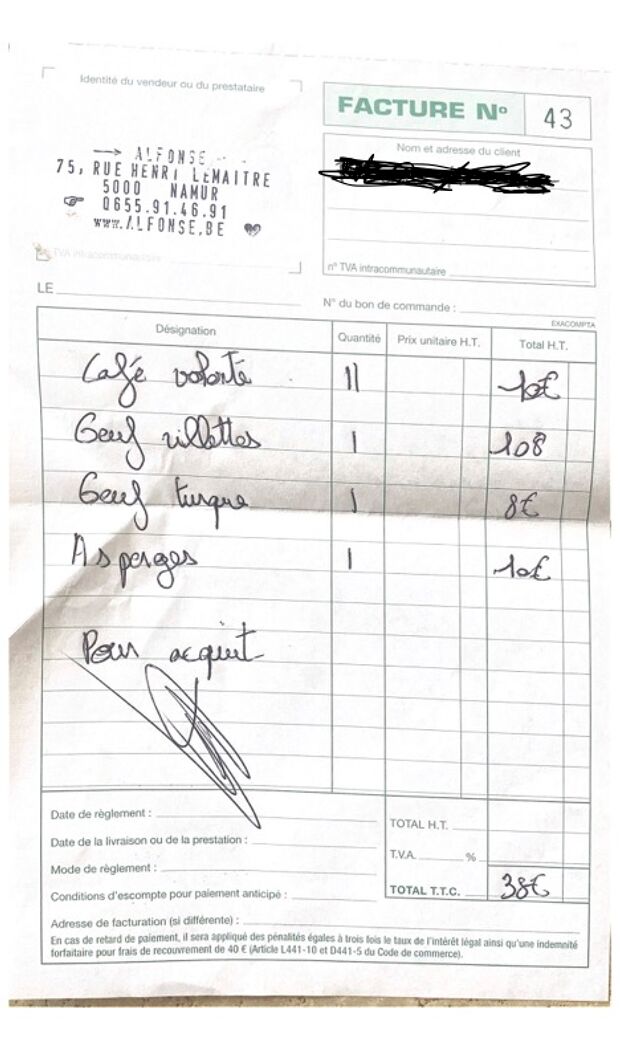 Identité du vendeur ou du prestataire
ALFONSE
75, RUE HENRI LEMAITRE
5000 NAMUR
0655.91.46.91
www.ALFONSE.BE
TVA intracommunautaire
FACTURE N° 43
Nom et adresse du client
n° TVA intracommunautaire
LE
N° du bon de commande :
EXACOMPTA
Désignation Quantité Prix unitaire H.T. Total H.T.
Café volonté 11 10€
Oeuf rillettes 1 10€
Oeuf turque 1 8€
Asperges 1 10€
Pour acquit
Date de règlement :
Date de la livraison ou de la prestation :
Mode de règlement :
Conditions d'escompte pour paiement anticipé :
TOTAL H.T.
T.V.A. %
TOTAL T.T.C. 38€
Adresse de facturation (si différente) :
En cas de retard de paiement, il sera appliqué des pénalités égales à trois fois le taux de l'intérêt légal ainsi qu'une indemnité
forfaitaire pour frais de recouvrement de 40 € (Article L441-10 et D441-5 du Code de commerce).